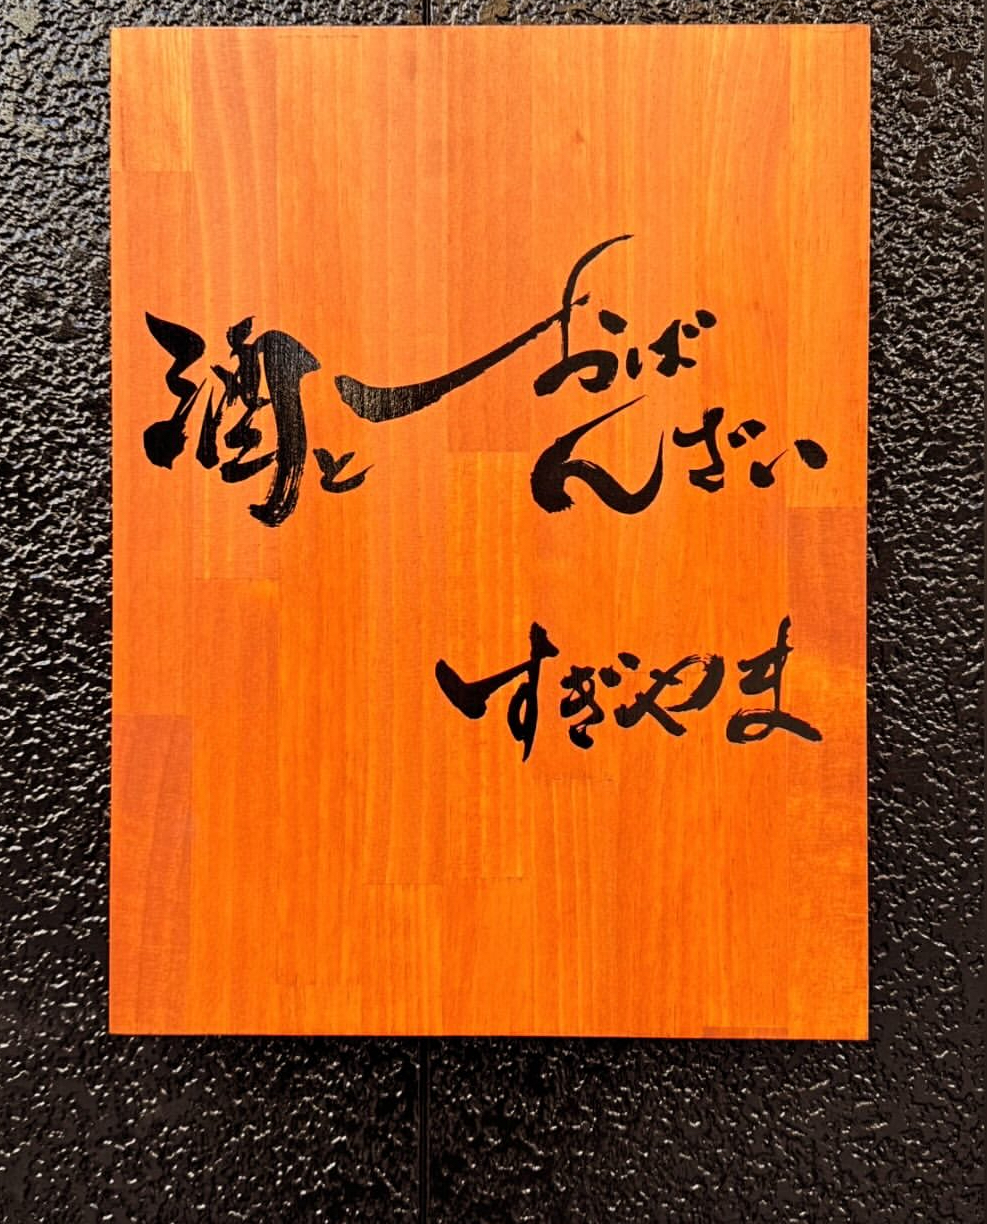 酒と おばんざい
すぎやま